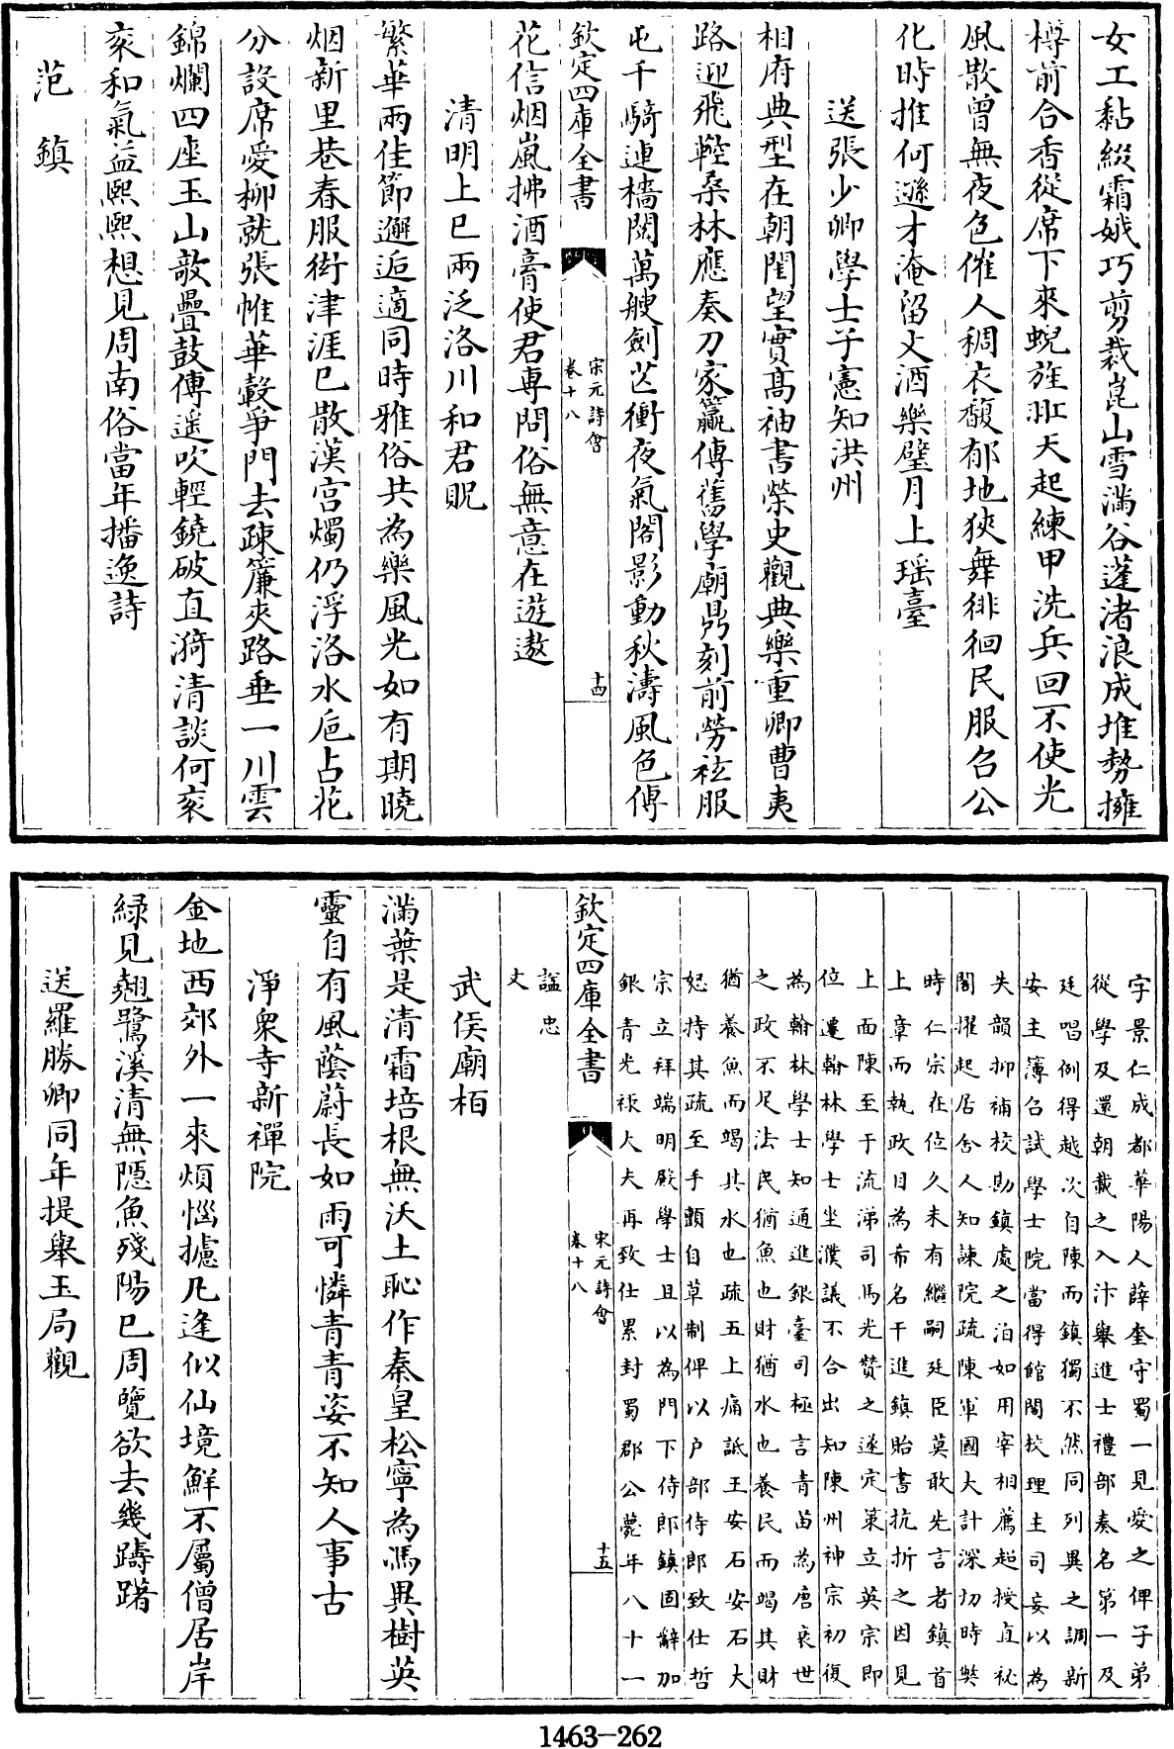 女工黏綴霜娥巧剪裁崑山雪滿谷蓬渚浪成堆勢擁
樽前合香從席下來蜺旌羾天起練甲洗兵回不使光
風散曾無夜色催人稠衣馥郁地狹舞徘徊民服召公
化時推何遜才淹留文酒樂璧月上瑶臺
送張少卿學士子憲知洪州
相府典型在朝閨望實髙袖書榮史觀典樂重卿曹夷
路迎飛輊桑林應奏刀家籯傳舊學廟鼎刻前勞袨服
屯千騎連檣閱萬艘劍芒衝夜氣閣影動秋濤風色傳
欽定四庫全書
宋元詩會
卷十八
十四
花信烟嵐拂酒膏使君專問俗無意在遊遨
清明上巳兩泛洛川和君貺
繁華兩佳節邂逅適同時雅俗共為樂風光如有期曉
烟新里巷春服衒津涯巳散漢宫燭仍浮洛水巵占花
分設席愛柳就張帷華轂爭門去疎簾夾路垂一川雲
錦爛四座玉山欹疊鼓傳遥吹輕鐃破直漪清談何衮
衮和氣益熙熙想見周南俗當年播逸詩
范鎮
字景仁成都華陽人薛奎守蜀一見愛之俾子弟
從學及還朝載之入汴舉進士禮部奏名第一及
廷唱例得越次自陳而鎮獨不然同列異之調新
安主簿召試學士院當得館閣校理主司妄以為
失韻抑補校勘鎮處之泊如用宰相薦超授直祕
閣擢起居舍人知諫院疏陳軍國大計深切時獘
時仁宗在位久未有繼嗣廷臣莫敢先言者鎮首
上章而執政目為希名干進鎮貽書抗折之因見
上面陳至于流涕司馬光贊之遂定策立英宗即
位遷翰林學士坐濮議不合出知陳州神宗初復
為翰林學士知通進銀臺司極言青苗為唐衰世
之政不足法民猶魚也財猶水也養民而竭其財
猶養魚而竭其水也疏五上痛詆王安石安石大
怒持其疏至手顫自草制俾以户部侍郎致仕哲
宗立拜端明殿學士且以為門下侍郎鎮固辭加
銀青光祿大夫再致仕累封蜀郡公薨年八十一
欽定四庫全書
宋元詩會
卷十八
十五
諡忠
文
武侯廟栢
滿葉是清霜培根無沃土恥作秦皇松寧為馮異樹英
靈自有風蔭蔚長如雨可憐青青姿不知人事古
淨衆寺新禪院
金地西郊外一來煩惱攄凡逢似仙境鮮不屬僧居岸
緑見翹鷺溪清無隱魚殘陽巳周覽欲去幾躊躇
送羅勝卿同年提舉玉局觀
1463-262